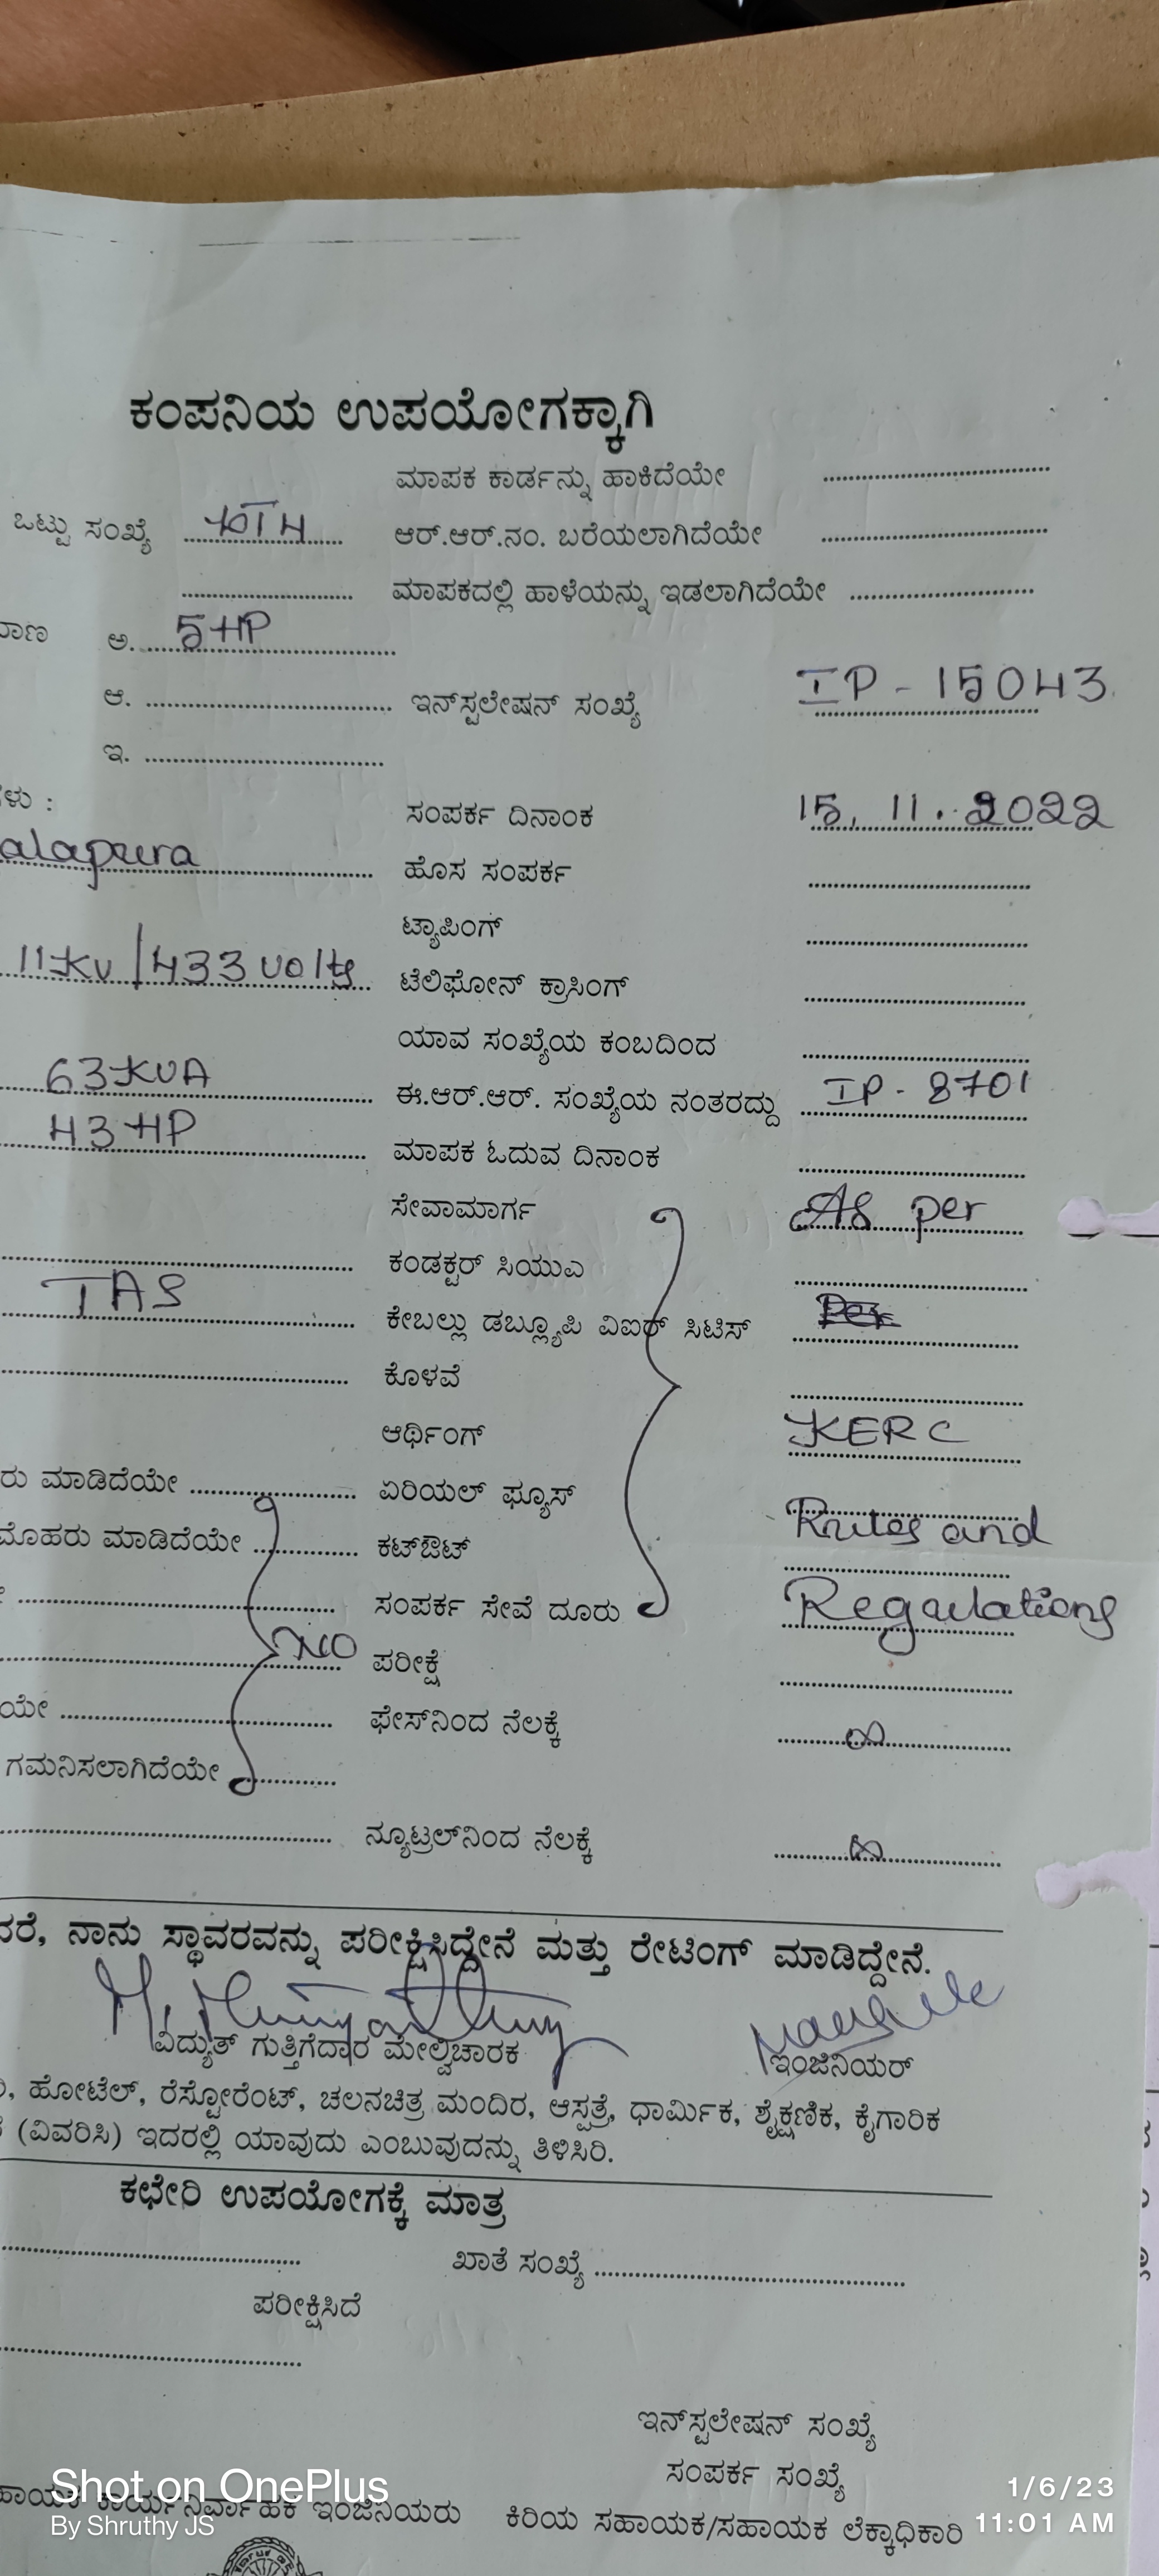 ಕಂಪನಿಯ ಉಪಯೋಗಕ್ಕಾಗಿ
ಮಾಪಕ ಕಾರ್ಡನ್ನು ಹಾಕಿದೆಯೇ
ಒಟ್ಟು ಸಂಖ್ಯೆ ಆರ್.ಆರ್.ನಂ. ಬರೆಯಲಾಗಿದೆಯೇ
ಮಾಪಕದಲ್ಲಿ ಹಾಳೆಯನ್ನು ಇಡಲಾಗಿದೆಯೇ
ಅ. 5HP
ಆ. ಇನ್‌ಸ್ಟಲೇಷನ್ ಸಂಖ್ಯೆ IP - 15043
ಇ.
ಸಂಪರ್ಕ ದಿನಾಂಕ 15, 11. 2022
alapura ಹೊಸ ಸಂಪರ್ಕ
ಟ್ಯಾಪಿಂಗ್
11KV/433 volts ಟೆಲಿಫೋನ್ ಕ್ರಾಸಿಂಗ್
ಯಾವ ಸಂಖ್ಯೆಯ ಕಂಬದಿಂದ
63KVA ಈ.ಆರ್.ಆರ್. ಸಂಖ್ಯೆಯ ನಂತರದ್ದು IP - 8701
43 HP ಮಾಪಕ ಓದುವ ದಿನಾಂಕ
ಸೇವಾಮಾರ್ಗ As per
ಕಂಡಕ್ಟರ್ ಸಿಯುಎ
TAS ಕೇಬಲ್ಲು ಡಬ್ಲ್ಯೂಪಿ ವಿಐಆರ್ ಸಿಟಿಸ್
ಕೊಳವೆ
ಆರ್ಥಿಂಗ್ KERC
ರು ಮಾಡಿದೆಯೇ ಏರಿಯಲ್ ಫ್ಯೂಸ್
ಮೊಹರು ಮಾಡಿದೆಯೇ ಕಟ್‌ಔಟ್ Rules and
ಸಂಪರ್ಕ ಸೇವೆ ದೂರು Regulations
NO ಪರೀಕ್ಷೆ
ಯೇ ಫೇಸ್‌ನಿಂದ ನೆಲಕ್ಕೆ ∞
ಗಮನಿಸಲಾಗಿದೆಯೇ
ನ್ಯೂಟ್ರಲ್‌ನಿಂದ ನೆಲಕ್ಕೆ ∞
ದರೆ, ನಾನು ಸ್ಥಾವರವನ್ನು ಪರೀಕ್ಷಿಸಿದ್ದೇನೆ ಮತ್ತು ರೇಟಿಂಗ್ ಮಾಡಿದ್ದೇನೆ.
ವಿದ್ಯುತ್ ಗುತ್ತಿಗೆದಾರ ಮೇಲ್ವಿಚಾರಕ ಇಂಜಿನಿಯರ್
ಹೋಟೆಲ್, ರೆಸ್ಟೋರೆಂಟ್, ಚಲನಚಿತ್ರ ಮಂದಿರ, ಆಸ್ಪತ್ರೆ, ಧಾರ್ಮಿಕ, ಶೈಕ್ಷಣಿಕ, ಕೈಗಾರಿಕ
(ವಿವರಿಸಿ) ಇದರಲ್ಲಿ ಯಾವುದು ಎಂಬುವುದನ್ನು ತಿಳಿಸಿರಿ.
ಕಛೇರಿ ಉಪಯೋಗಕ್ಕೆ ಮಾತ್ರ
ಖಾತೆ ಸಂಖ್ಯೆ
ಪರೀಕ್ಷಿಸಿದೆ
ಇನ್‌ಸ್ಟಲೇಷನ್ ಸಂಖ್ಯೆ
ಸಂಪರ್ಕ ಸಂಖ್ಯೆ
ಹಾಯಕ ಕಾರ್ಯನಿರ್ವಾಹಕ ಇಂಜಿನಿಯರು ಕಿರಿಯ ಸಹಾಯಕ/ಸಹಾಯಕ ಲೆಕ್ಕಾಧಿಕಾರಿ
Shot on OnePlus
By Shruthy JS
1/6/23
11:01 AM